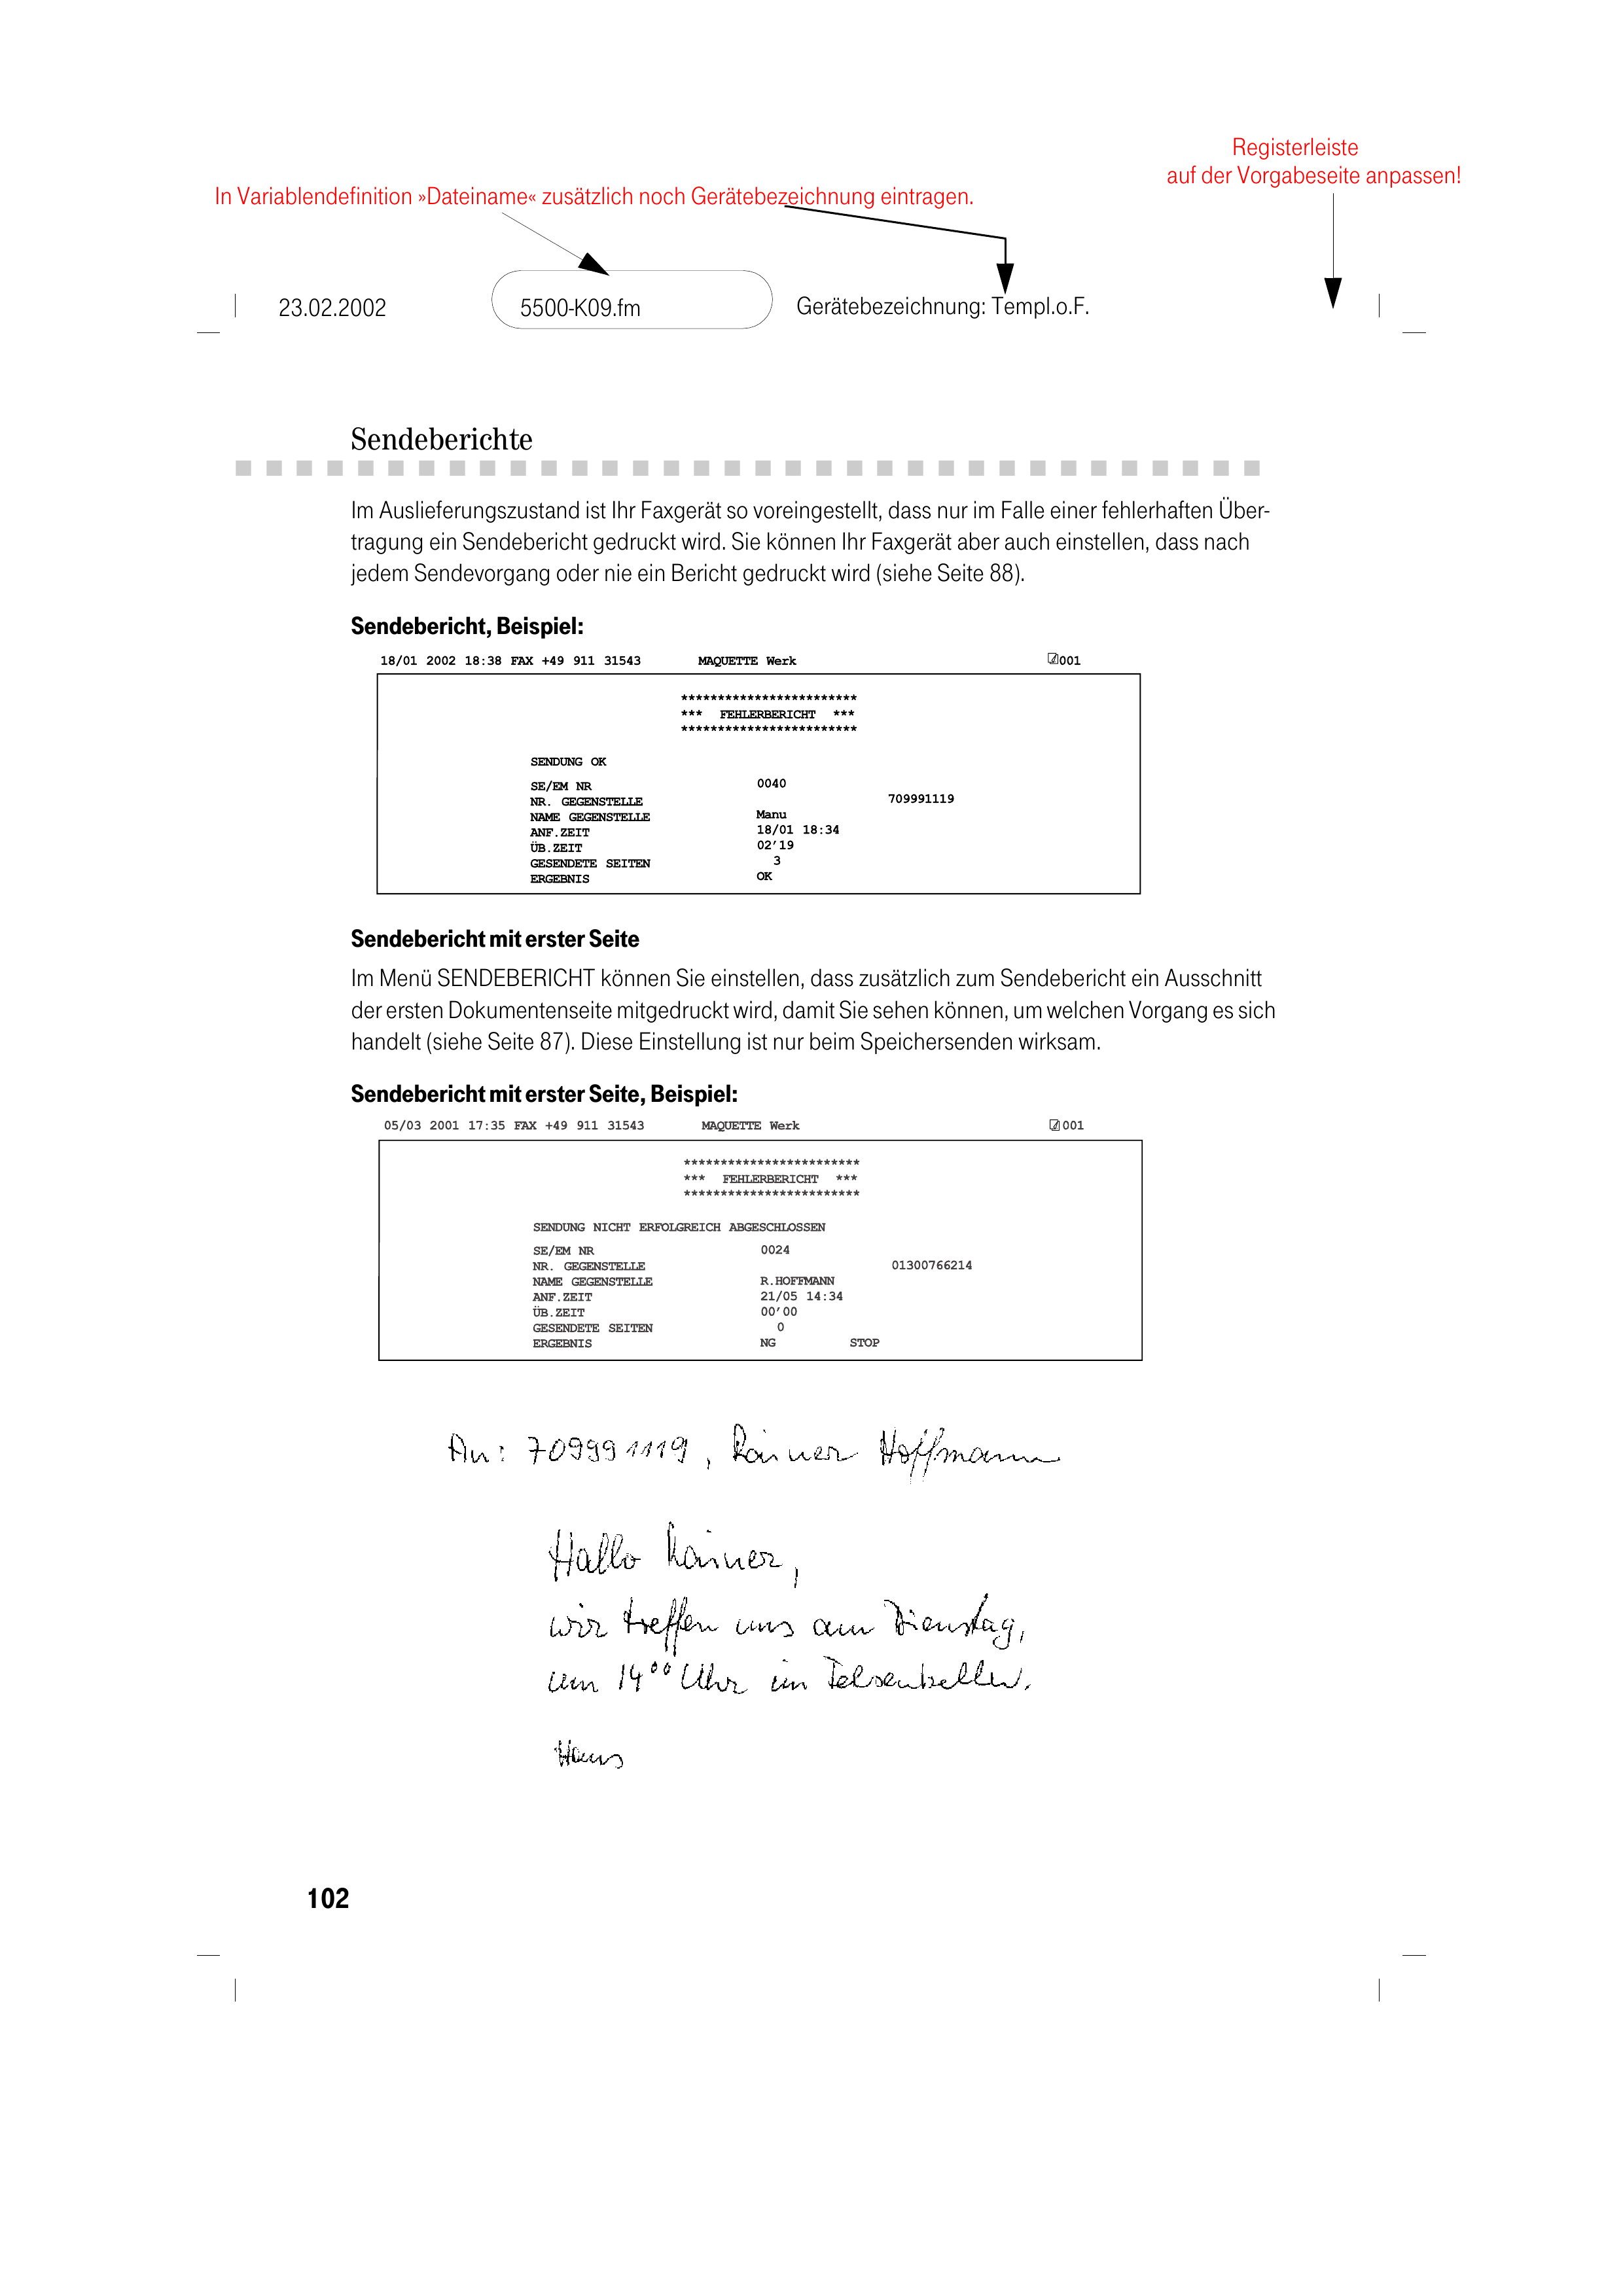 Registerleiste
auf der Vorgabeseite anpassen!
In Variablendefinition »Dateiname« zusätzlich noch Gerätebezeichnung eintragen.
23.02.2002 5500-K09.fm Gerätebezeichnung: Templ.o.F.
Sendeberichte
Im Auslieferungszustand ist Ihr Faxgerät so voreingestellt, dass nur im Falle einer fehlerhaften Über-
tragung ein Sendebericht gedruckt wird. Sie können Ihr Faxgerät aber auch einstellen, dass nach
jedem Sendevorgang oder nie ein Bericht gedruckt wird (siehe Seite 88).
Sendebericht, Beispiel:
18/01 2002 18:38 FAX +49 911 31543 MAQUETTE Werk 001
************************
*** FEHLERBERICHT ***
************************
SENDUNG OK
SE/EM NR 0040
NR. GEGENSTELLE 709991119
NAME GEGENSTELLE Manu
ANF.ZEIT 18/01 18:34
ÜB.ZEIT 02’19
GESENDETE SEITEN 3
ERGEBNIS OK
Sendebericht mit erster Seite
Im Menü SENDEBERICHT können Sie einstellen, dass zusätzlich zum Sendebericht ein Ausschnitt
der ersten Dokumentenseite mitgedruckt wird, damit Sie sehen können, um welchen Vorgang es sich
handelt (siehe Seite 87). Diese Einstellung ist nur beim Speichersenden wirksam.
Sendebericht mit erster Seite, Beispiel:
05/03 2001 17:35 FAX +49 911 31543 MAQUETTE Werk 001
************************
*** FEHLERBERICHT ***
************************
SENDUNG NICHT ERFOLGREICH ABGESCHLOSSEN
SE/EM NR 0024
NR. GEGENSTELLE 01300766214
NAME GEGENSTELLE R.HOFFMANN
ANF.ZEIT 21/05 14:34
ÜB.ZEIT 00’00
GESENDETE SEITEN 0
ERGEBNIS NG STOP
An: 709991119, Rainer Hoffmann
Hallo Rainer,
wir treffen uns am Dienstag,
um 14⁰⁰ Uhr im Felsenkeller.
Hans
102